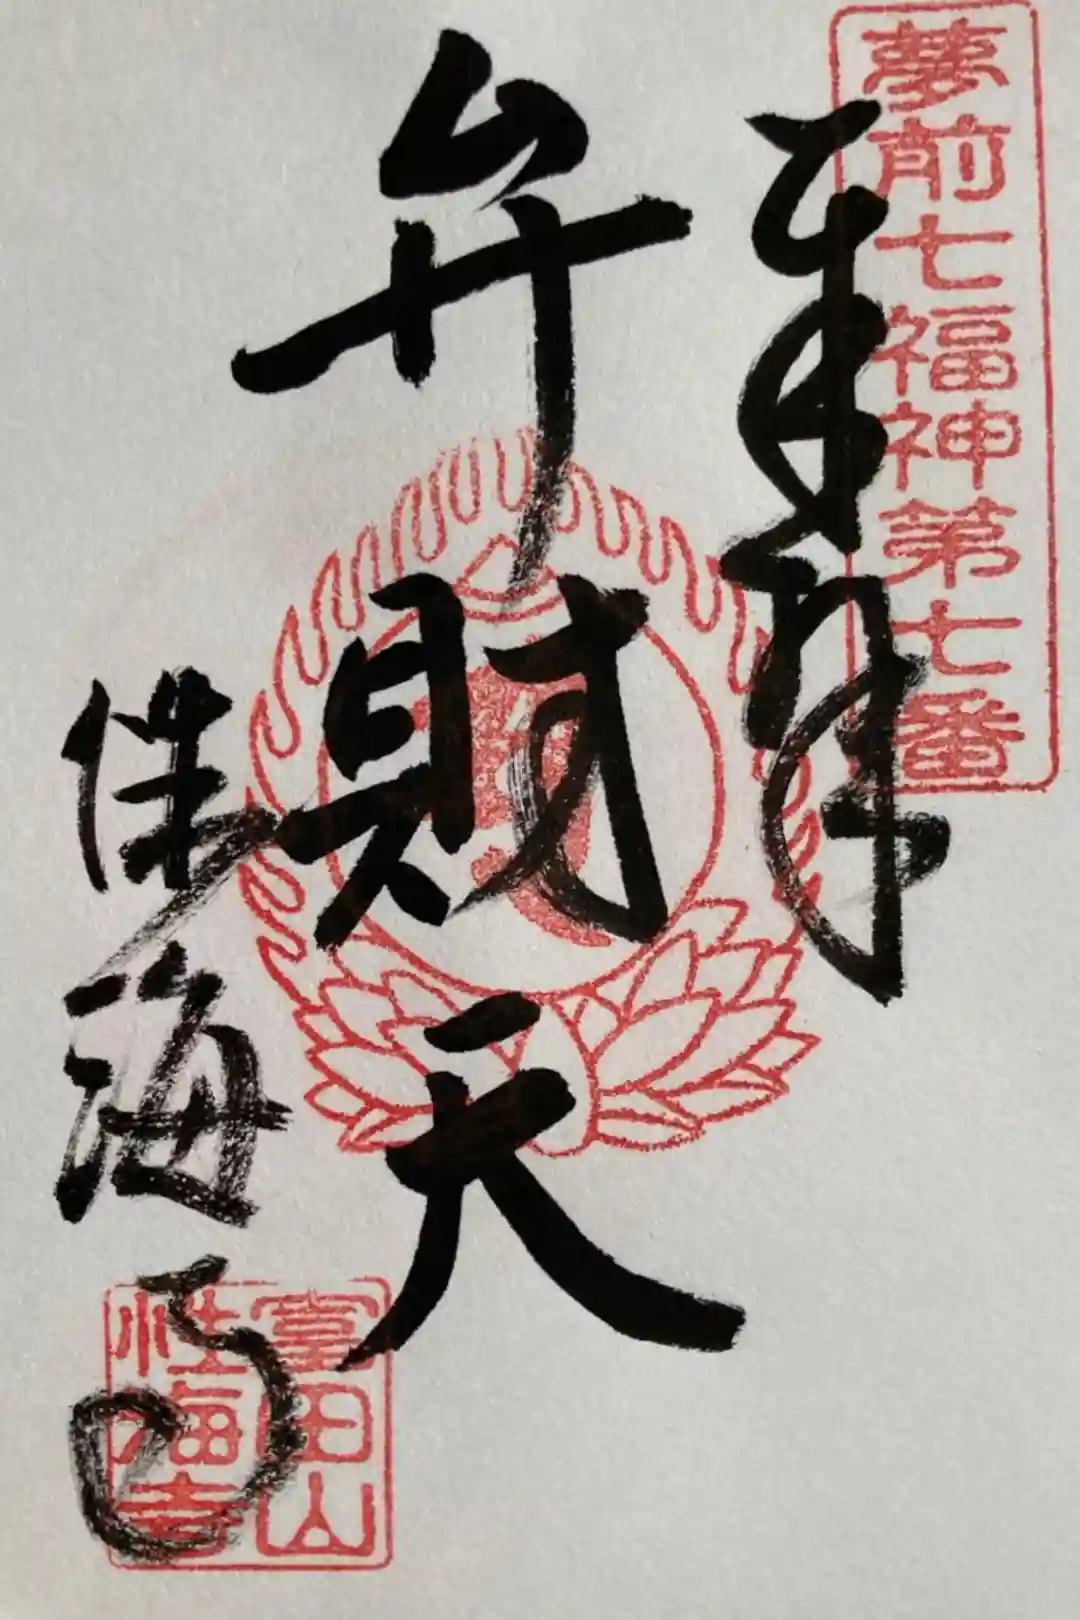 夢前七福神第七番
奉拝
弁財天
性海寺
富田山
性海寺